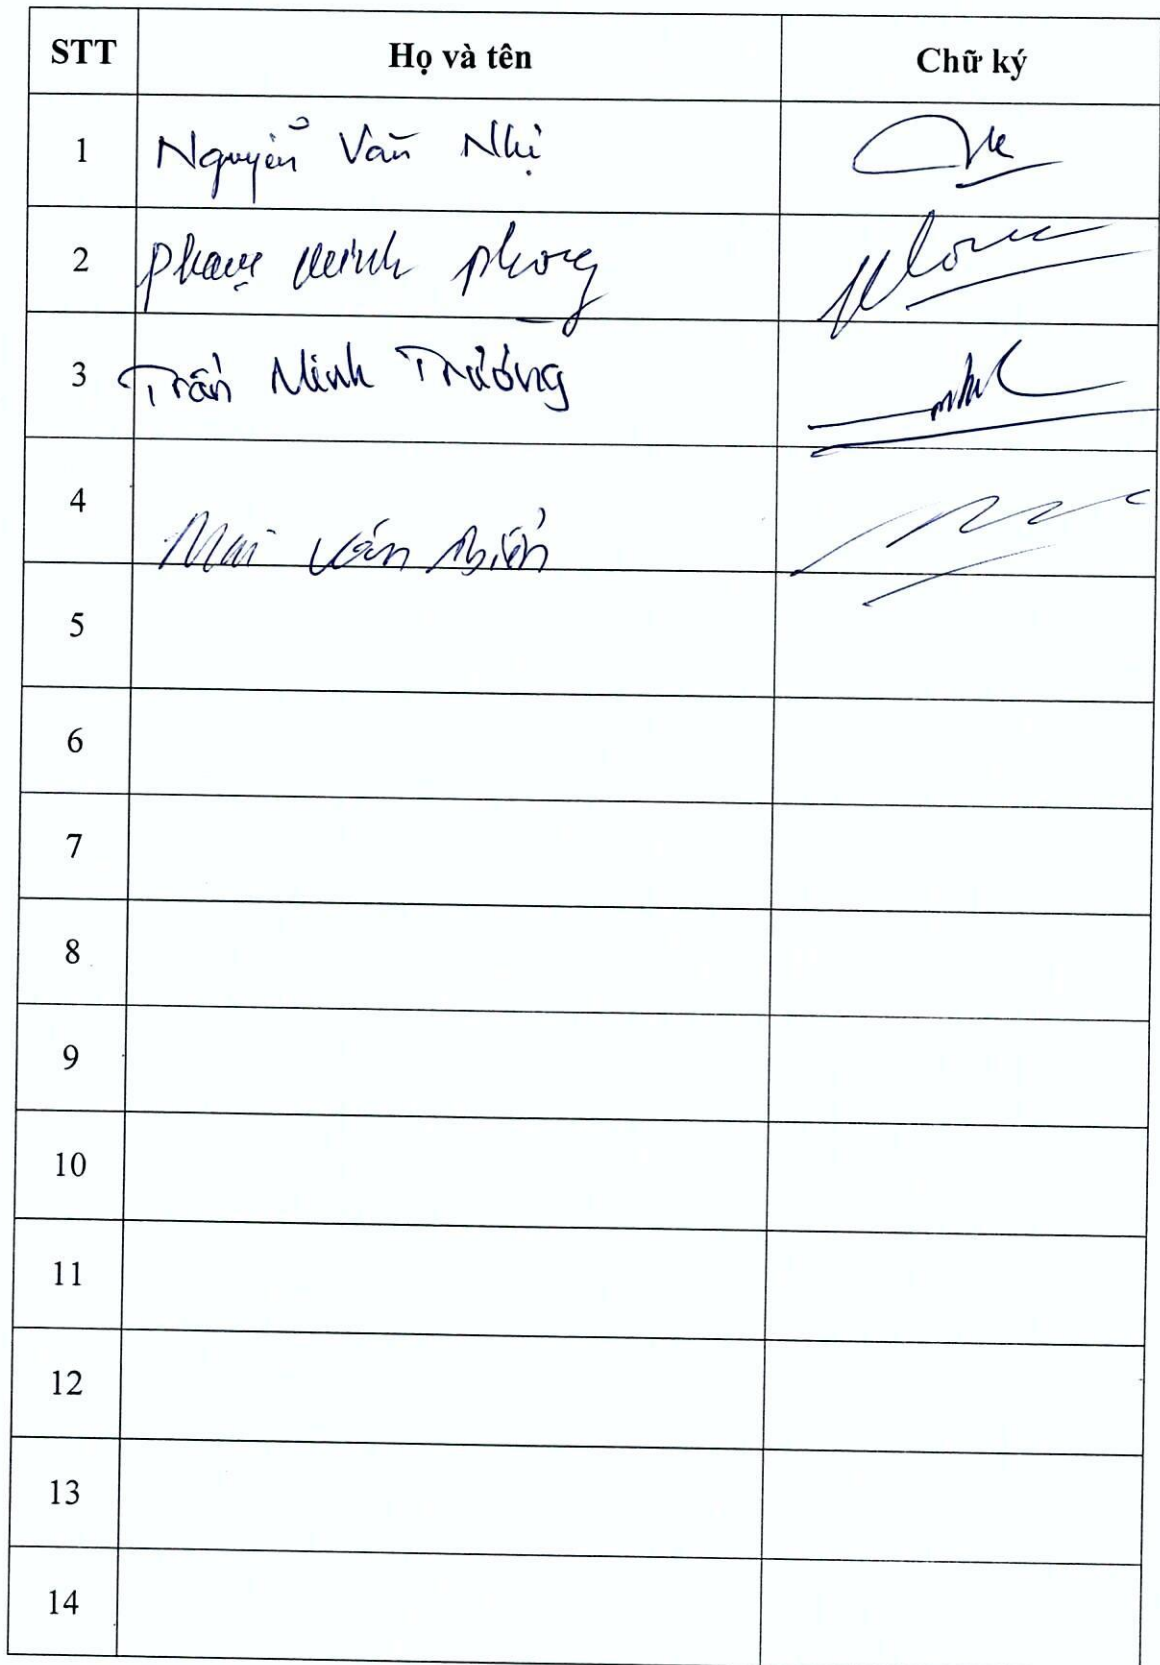 STT Họ và tên Chữ ký
1 Nguyễn Văn Nhị
2 Phạm Minh Phong
3 Trần Minh Trường
4 Mai Văn
5
6
7
8
9
10
11
12
13
14